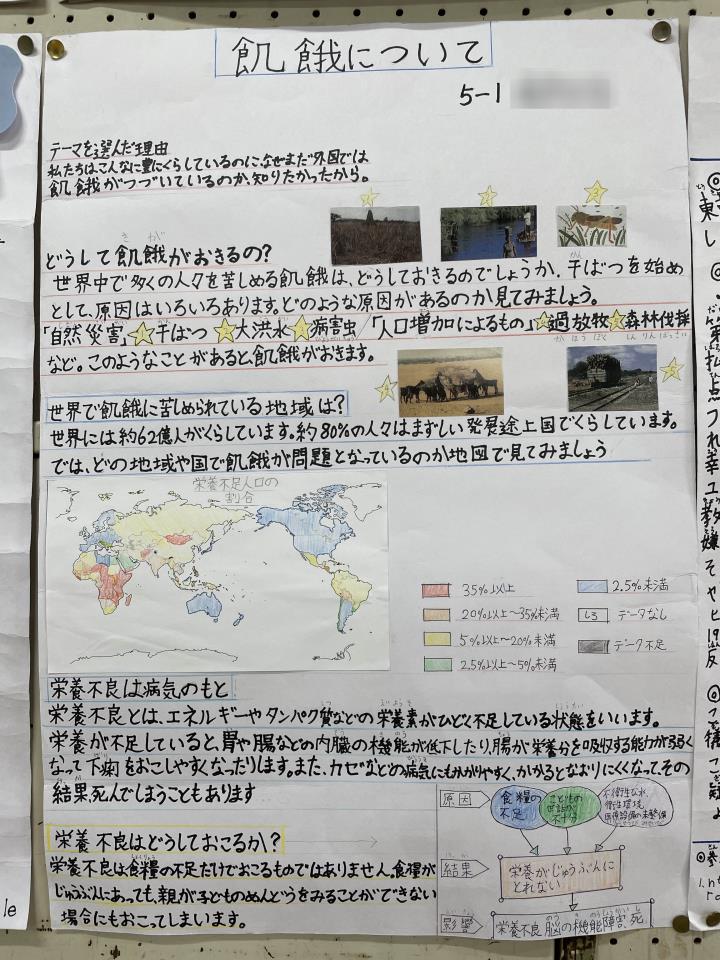 飢餓について
5-1
テーマを選んだ理由
私たちはこんなに豊にくらしているのに、なぜまだ外国では
飢餓がつづいているのか、知りたかったから。
どうして飢餓がおきるの?
世界中で多くの人々を苦しめる飢餓は、どうしておきるのでしょうか。干ばつを始め
として、原因はいろいろあります。どのような原因があるのか見てみましょう。
「自然災害」1干ばつ 2大洪水 3病害虫/「人口増加によるもの」4過放牧 5森林伐採
など。このようなことがあると、飢餓がおきます。
世界で飢餓に苦しめられている地域は?
世界には約62億人がくらしています。約80%の人々はまずしい発展途上国でくらしています。
では、どの地域や国で飢餓が問題となっているのか地図で見てみましょう
栄養不足人口の
割合
35%以上
20%以上~35%未満
5%以上~20%未満
2.5%以上~5%未満
2.5%未満
しろ データなし
データ不足
栄養不良は病気のもと
栄養不良とは、エネルギーやタンパク質などの栄養素がひどく不足している状態をいいます。
栄養が不足していると、胃や腸などの内臓の機能が低下したり、腸が栄養分を吸収する能力が弱く
なって下痢をおこしやすくなったりします。また、カゼなどの病気にもかかりやすく、かかるとなおりにくくなって、その
結果、死んでしまうこともあります
栄養不良はどうしておこるか?
栄養不良は食糧の不足だけでおこるものではありません。食糧が
じゅうぶんにあっても、親が子どものめんどうをみることができない
場合にもおこってしまいます。
原因
食糧の
不足
こどもの
世話が
不十分
不衛生な水、
衛生環境、
医療設備の未整備
結果
栄養がじゅうぶんに
とれない
影響
栄養不良、脳の機能障害、死
le